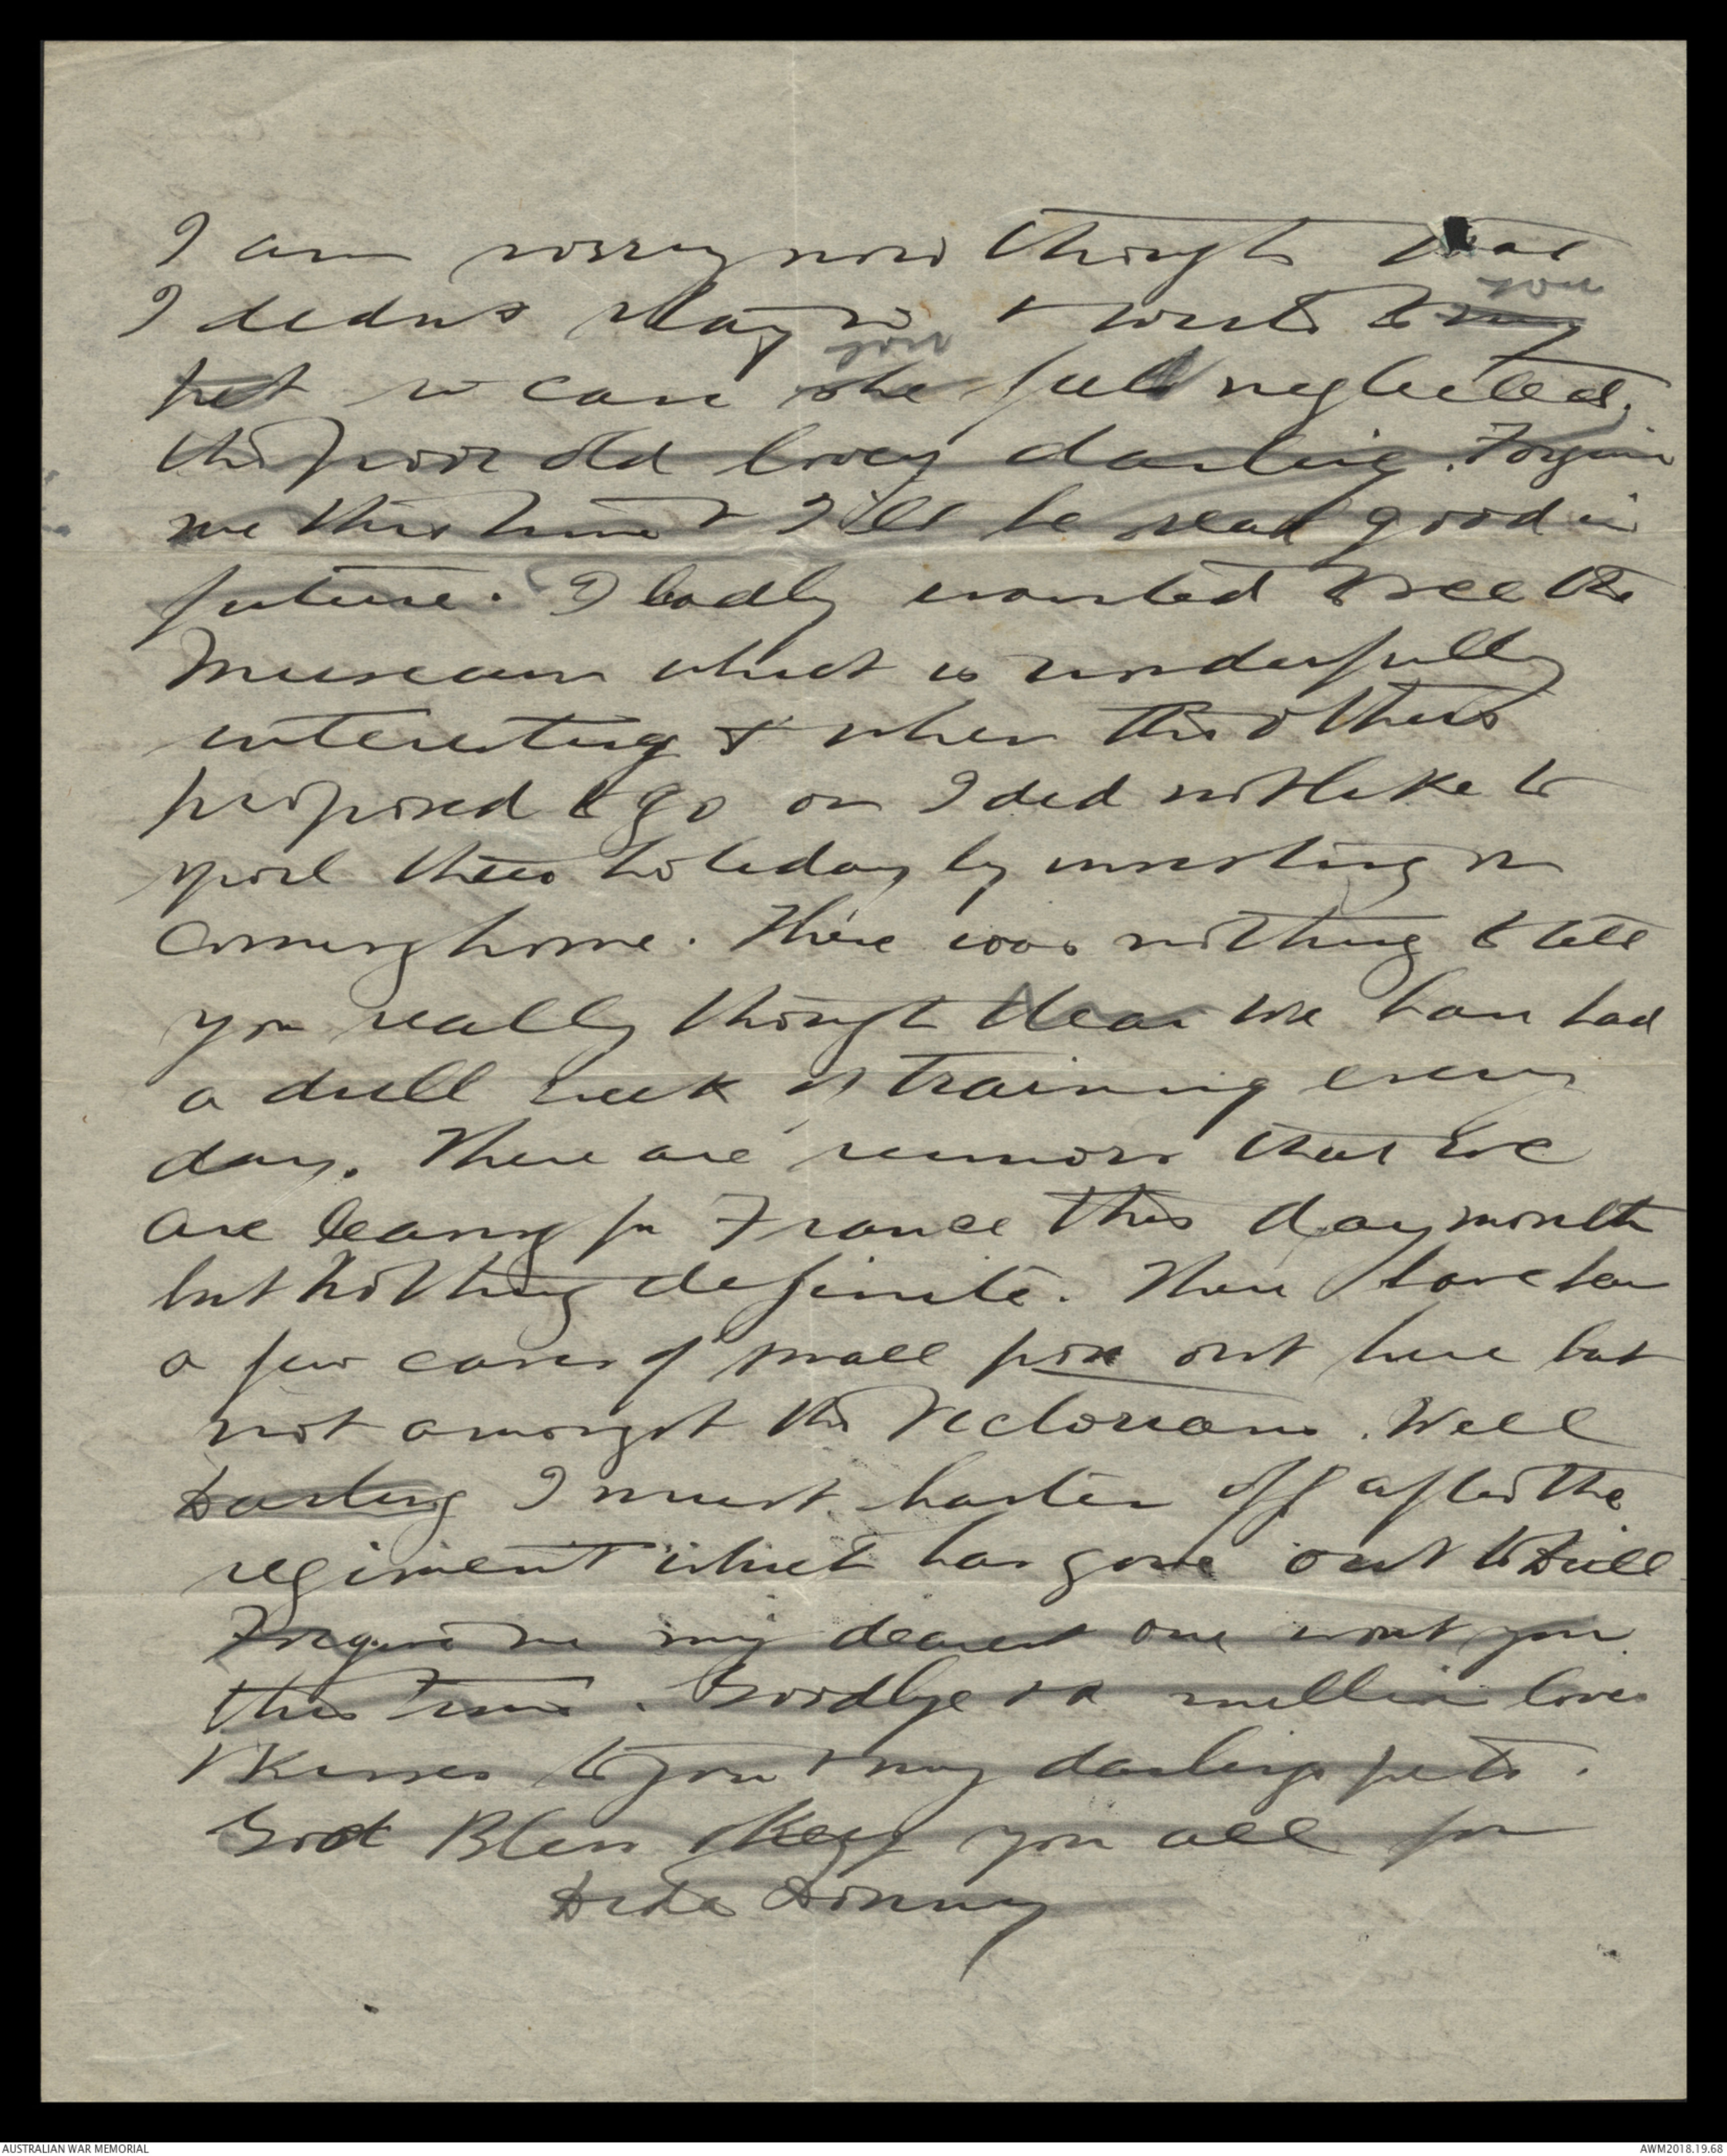 I am sorry now though dear
I didn't stay in & write to my
not
pet in case she feels neglected,
not
the poor old lovey darling. Forgive
me this time & I'll be real good in
future. I badly wanted to see the
Museum which is wonderfully
interesting & when the others
proposed to go on I did not like to
spoil their holiday by insisting on
coming home. There was nothing to tell
you really though dear we have had
a dull week of training every
day. There are rumors that we
are leaving for France this day month
but nothing definite. There have been
a few cases of small pox out here but
not amongst the Victorians. Well
Darling I must hasten off after the
regiment which has gone out to drill
Forgive me my dearest one wont you
this time. Goodbye & a million loves
& kisses to you & my darling pets.
God Bless & keep you all for
AUSTRALIAN WAR MEMORIAL
AWM2018.19.68